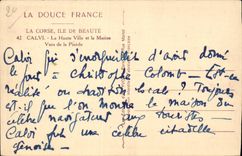 20
LA DOUCE FRANCE
LA CORSE, ILE DE BEAUTÉ
42 CALVI. - La Haute Ville et la Marine
Vues de la Pinède
Calvi qui s'enorgueillit d'avoir donné
le jour à Christophe Colomb - Est-ce
réalité ou tradition locale? Toujours
est-il que l'on montre la maison du
célèbre navigateur aux touristes -
Calvi fut une célèbre citadelle
génoise -